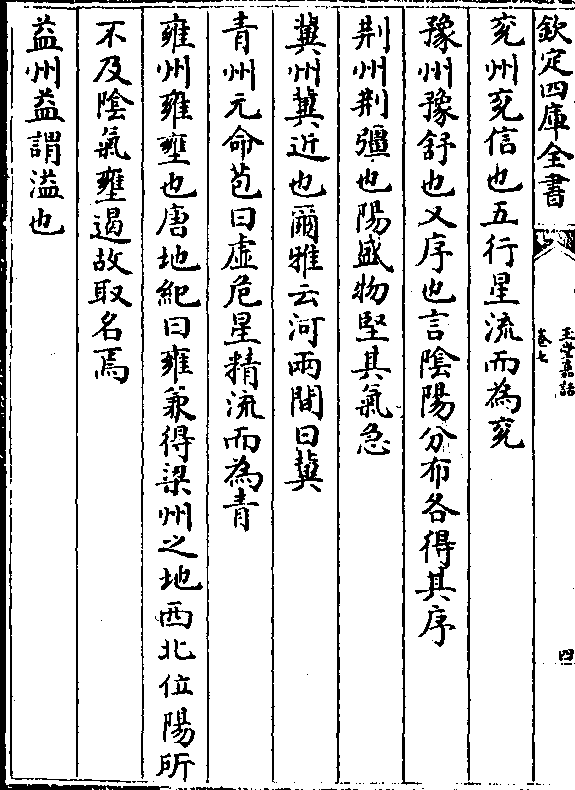 欽定四庫全書
玉堂嘉話
卷七
四
兗州兗信也五行星流而為兗
豫州豫舒也又序也言陰陽分布各得其序
荆州荆彊也陽盛物堅其氣急
冀州冀近也爾雅云河兩間曰冀
青州元命苞曰虛危星精流而為青
雍州雍壅也唐地紀曰雍兼得梁州之地西北位陽所
不及陰氣壅遏故取名焉
益州益謂溢也